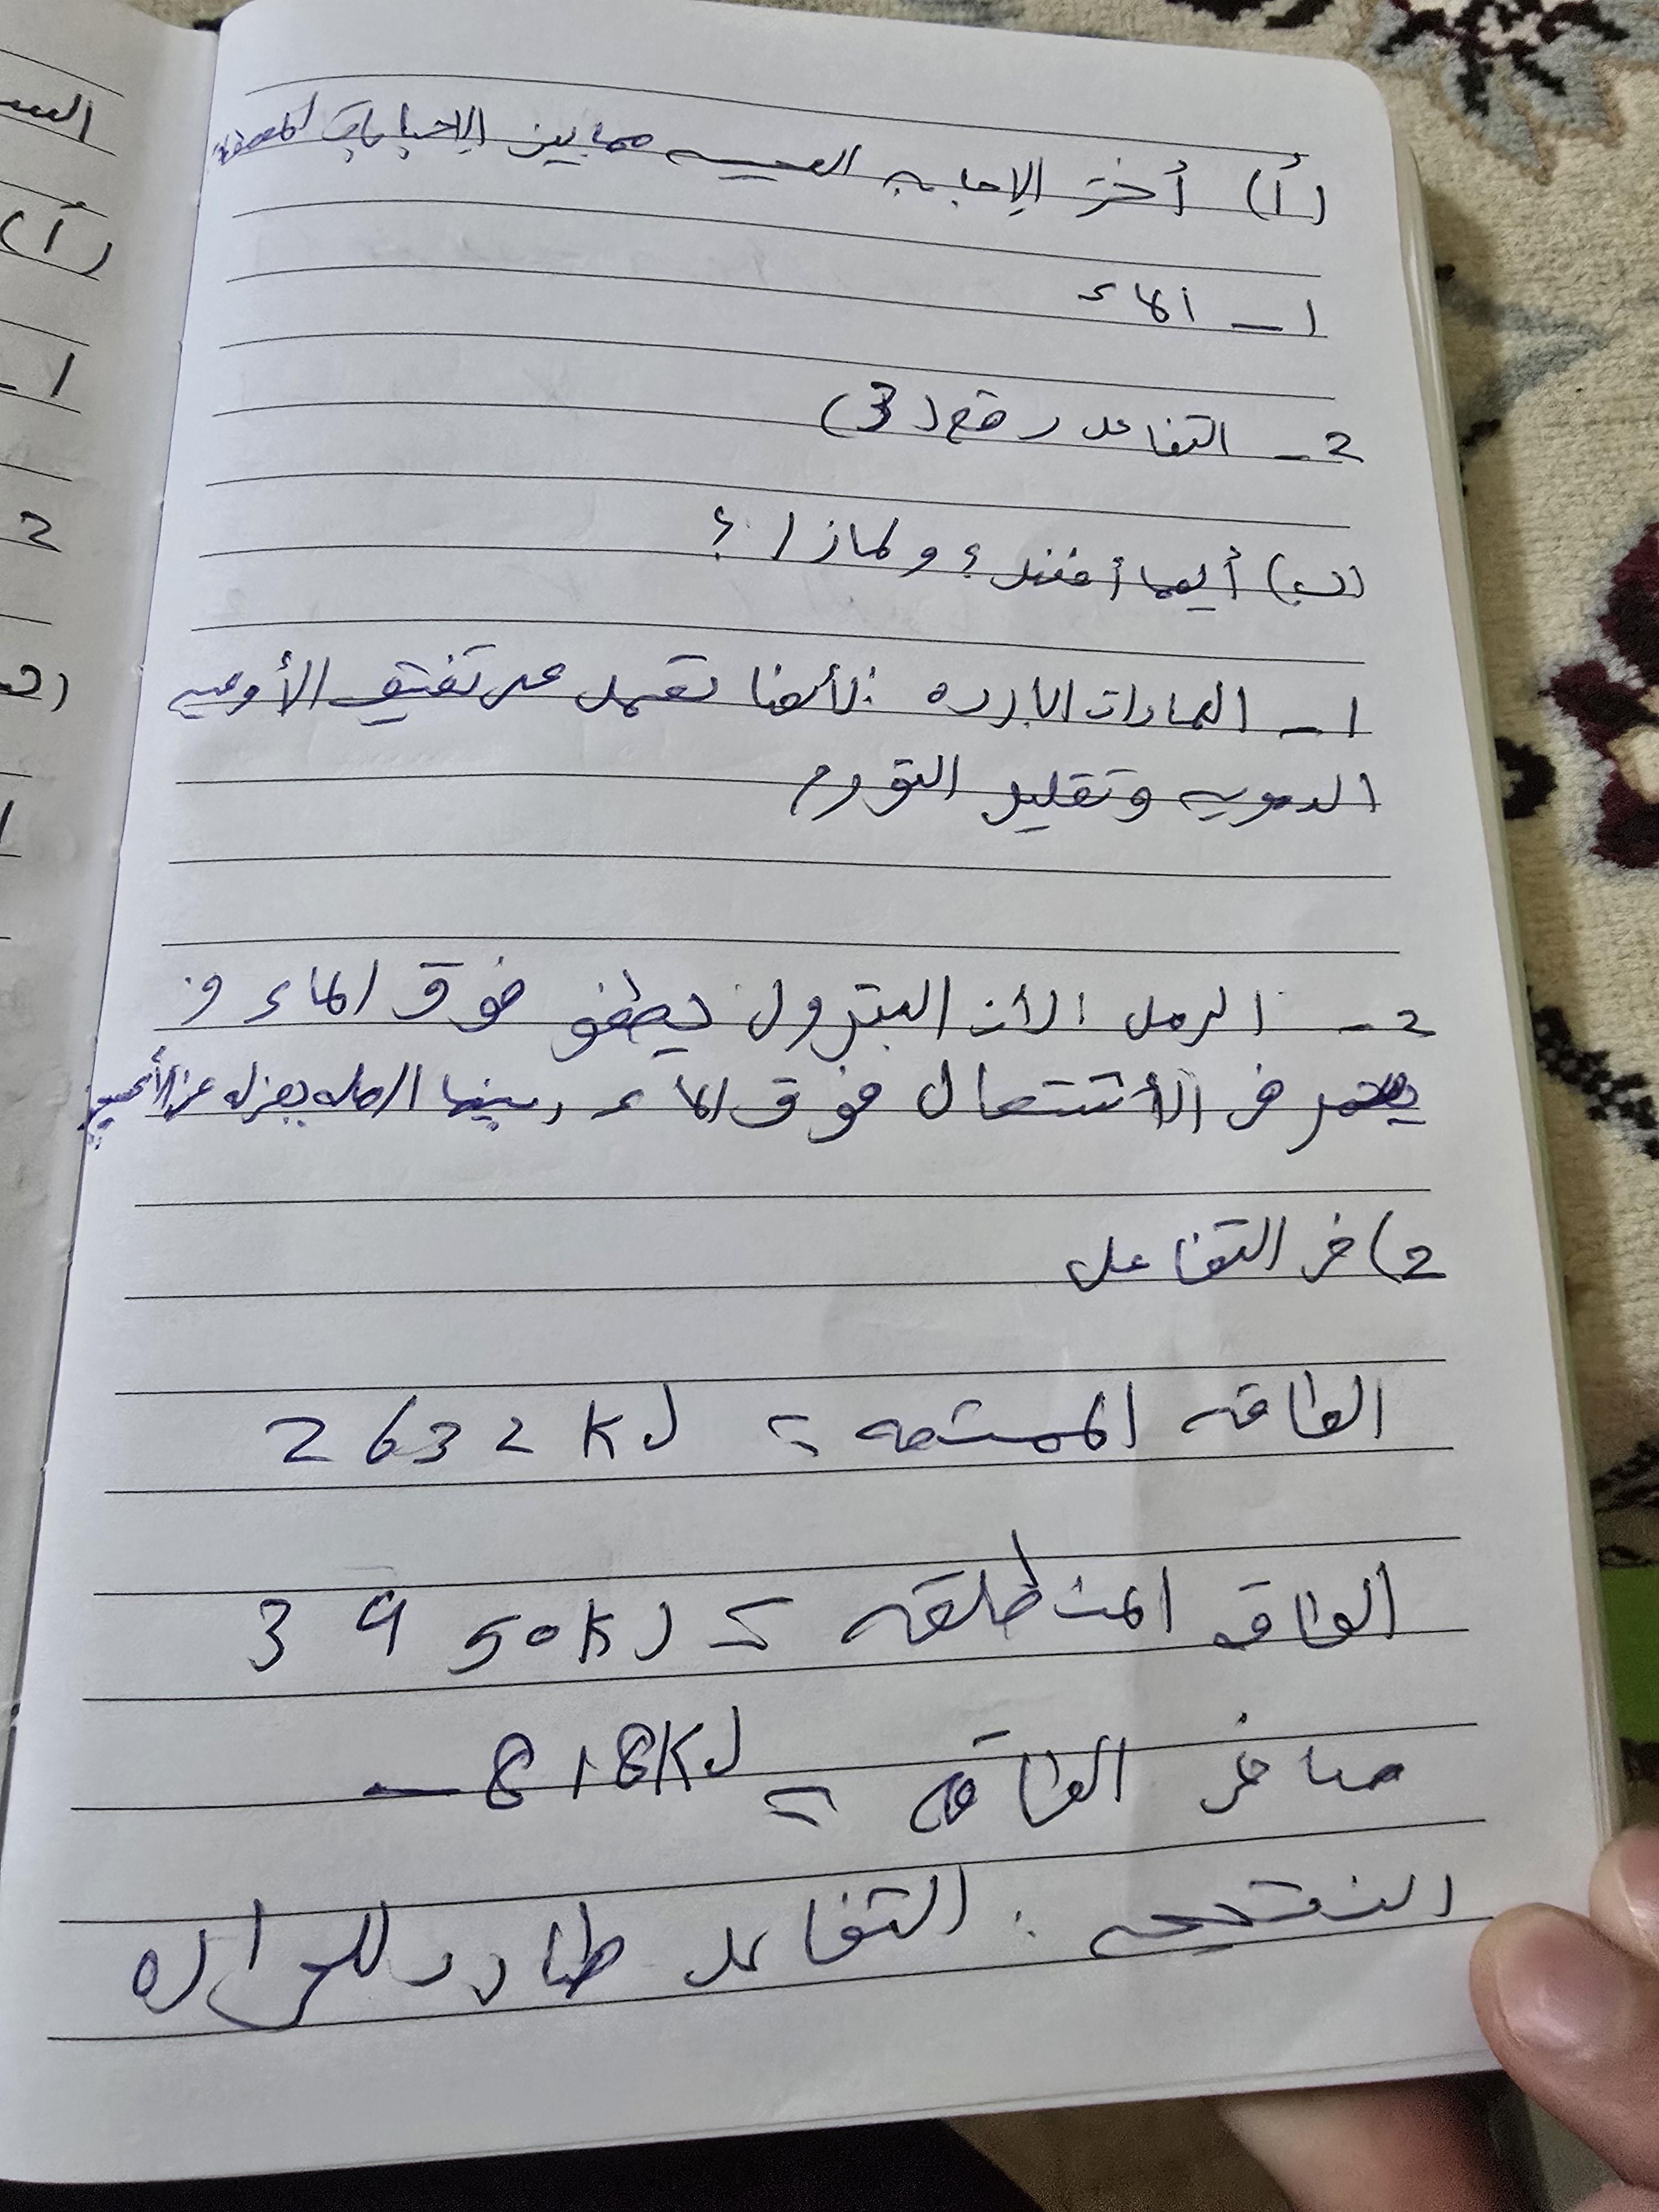 (أ) أختر الإجابه الصحيحه مما بين الإجابات المعطاه
1 - الماء
2 - التفاعل رقم (3)
(ب) أيهما أفضل ؟ ولماذا ؟
1 - الكمادات الباردة : لأنها تعمل على تضيق الأوعيه
الدمويه وتقليل التورم
2 - الرمل : لأن البترول يطفو فوق الماء و
يستمر في الأشتعال فوق الماء ، بينما الرمل يعزله عن الأكسجين
2) في التفاعل
الطاقه الممتصه = 2632 KJ
الطاقه المنطلقه = 3450 KJ
صافي الطاقه = -818 KJ
النتيجه : التفاعل طارد للحراره
السـ
(أ)
1 -
2
(ب)
1